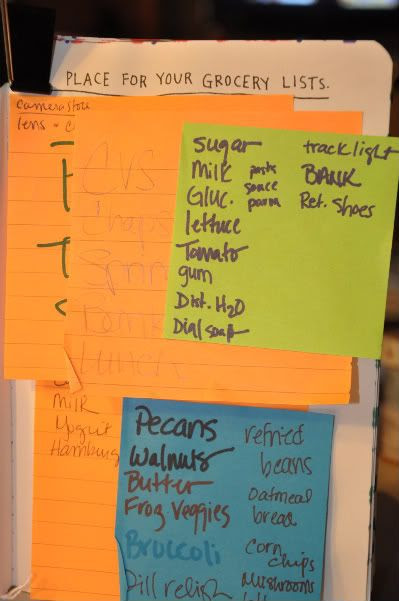 PLACE FOR YOUR GROCERY LISTS.
camera store
lens
CVS
Chaps
Lunch
sugar
Milk
Gluc.
lettuce
Tomato
gum
Dist. H2O
Dial soap
pasta
sauce
track light
BANK
Ret. Shoes
Milk
Yogurt
Hamburg
Pecans
Walnuts
Butter
Frog Veggies
Broccoli
Dill relish
refried
beans
Oatmeal
bread
Corn
chips
Mushrooms